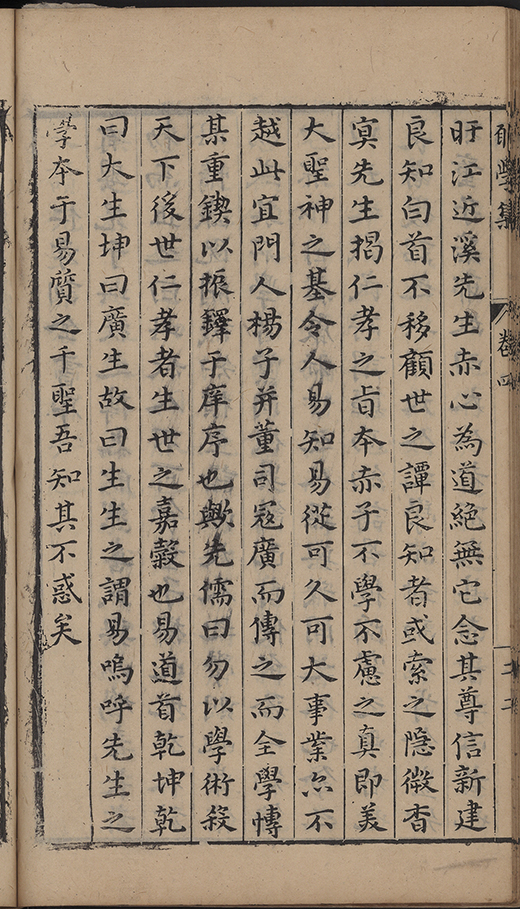 學集
卷四
旴江近溪先生赤心為道絕無它念其尊信新建
良知白首不移顧世之譚良知者或索之隱微杳
㝠先生揭仁孝之旨夲赤子不學不慮之真即美
大聖神之基令人易知易從可久可大事業亦不
越此宜門人楊子并董司寇廣而傳之而全學博
某重鍥以振鐸于庠序也歟先儒曰勿以學術殺
天下後世仁孝者生世之嘉穀也易道首乾坤乾
曰大生坤曰廣生故曰生生之謂易嗚呼先生之
學夲于易質之千聖吾知其不惑矣